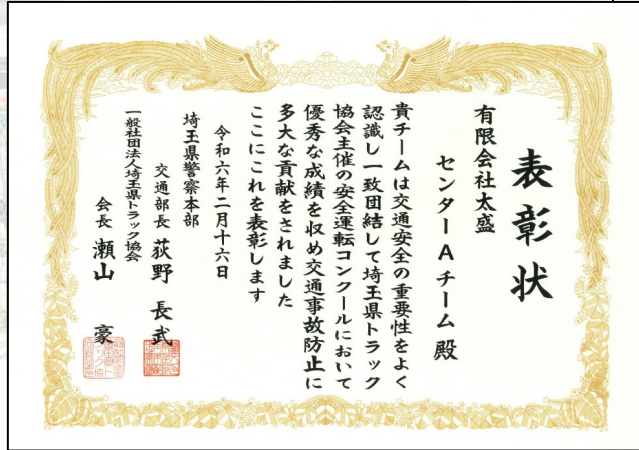 表彰状
有限会社太盛
センターAチーム殿
貴チームは交通安全の重要性をよく
認識し一致団結して埼玉県トラック
協会主催の安全運転コンクールにおいて
優秀な成績を収め交通事故防止に
多大な貢献をされました
ここにこれを表彰します
令和六年二月十六日
埼玉県警察本部
交通部長 荻野長武
一般社団法人埼玉県トラック協会
会長 瀬山豪